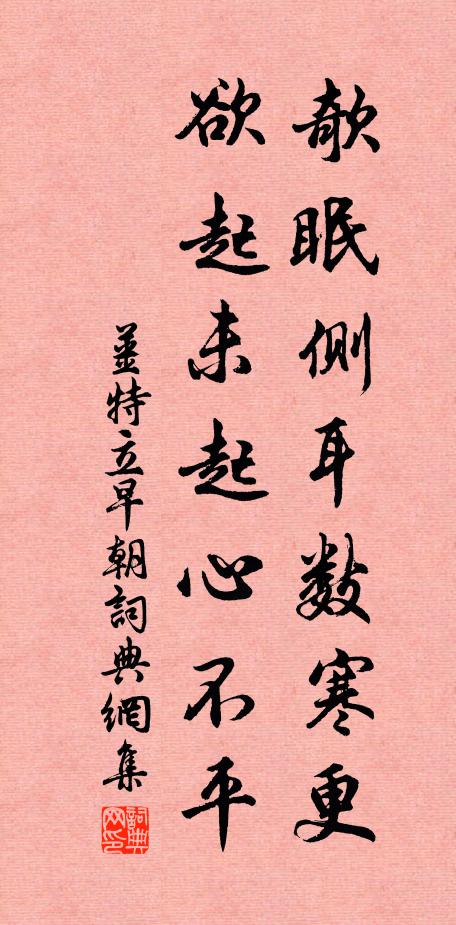 欹眠側耳數寒更
欲起未起心不平
姜特立早朝詞典網集
詞典网印